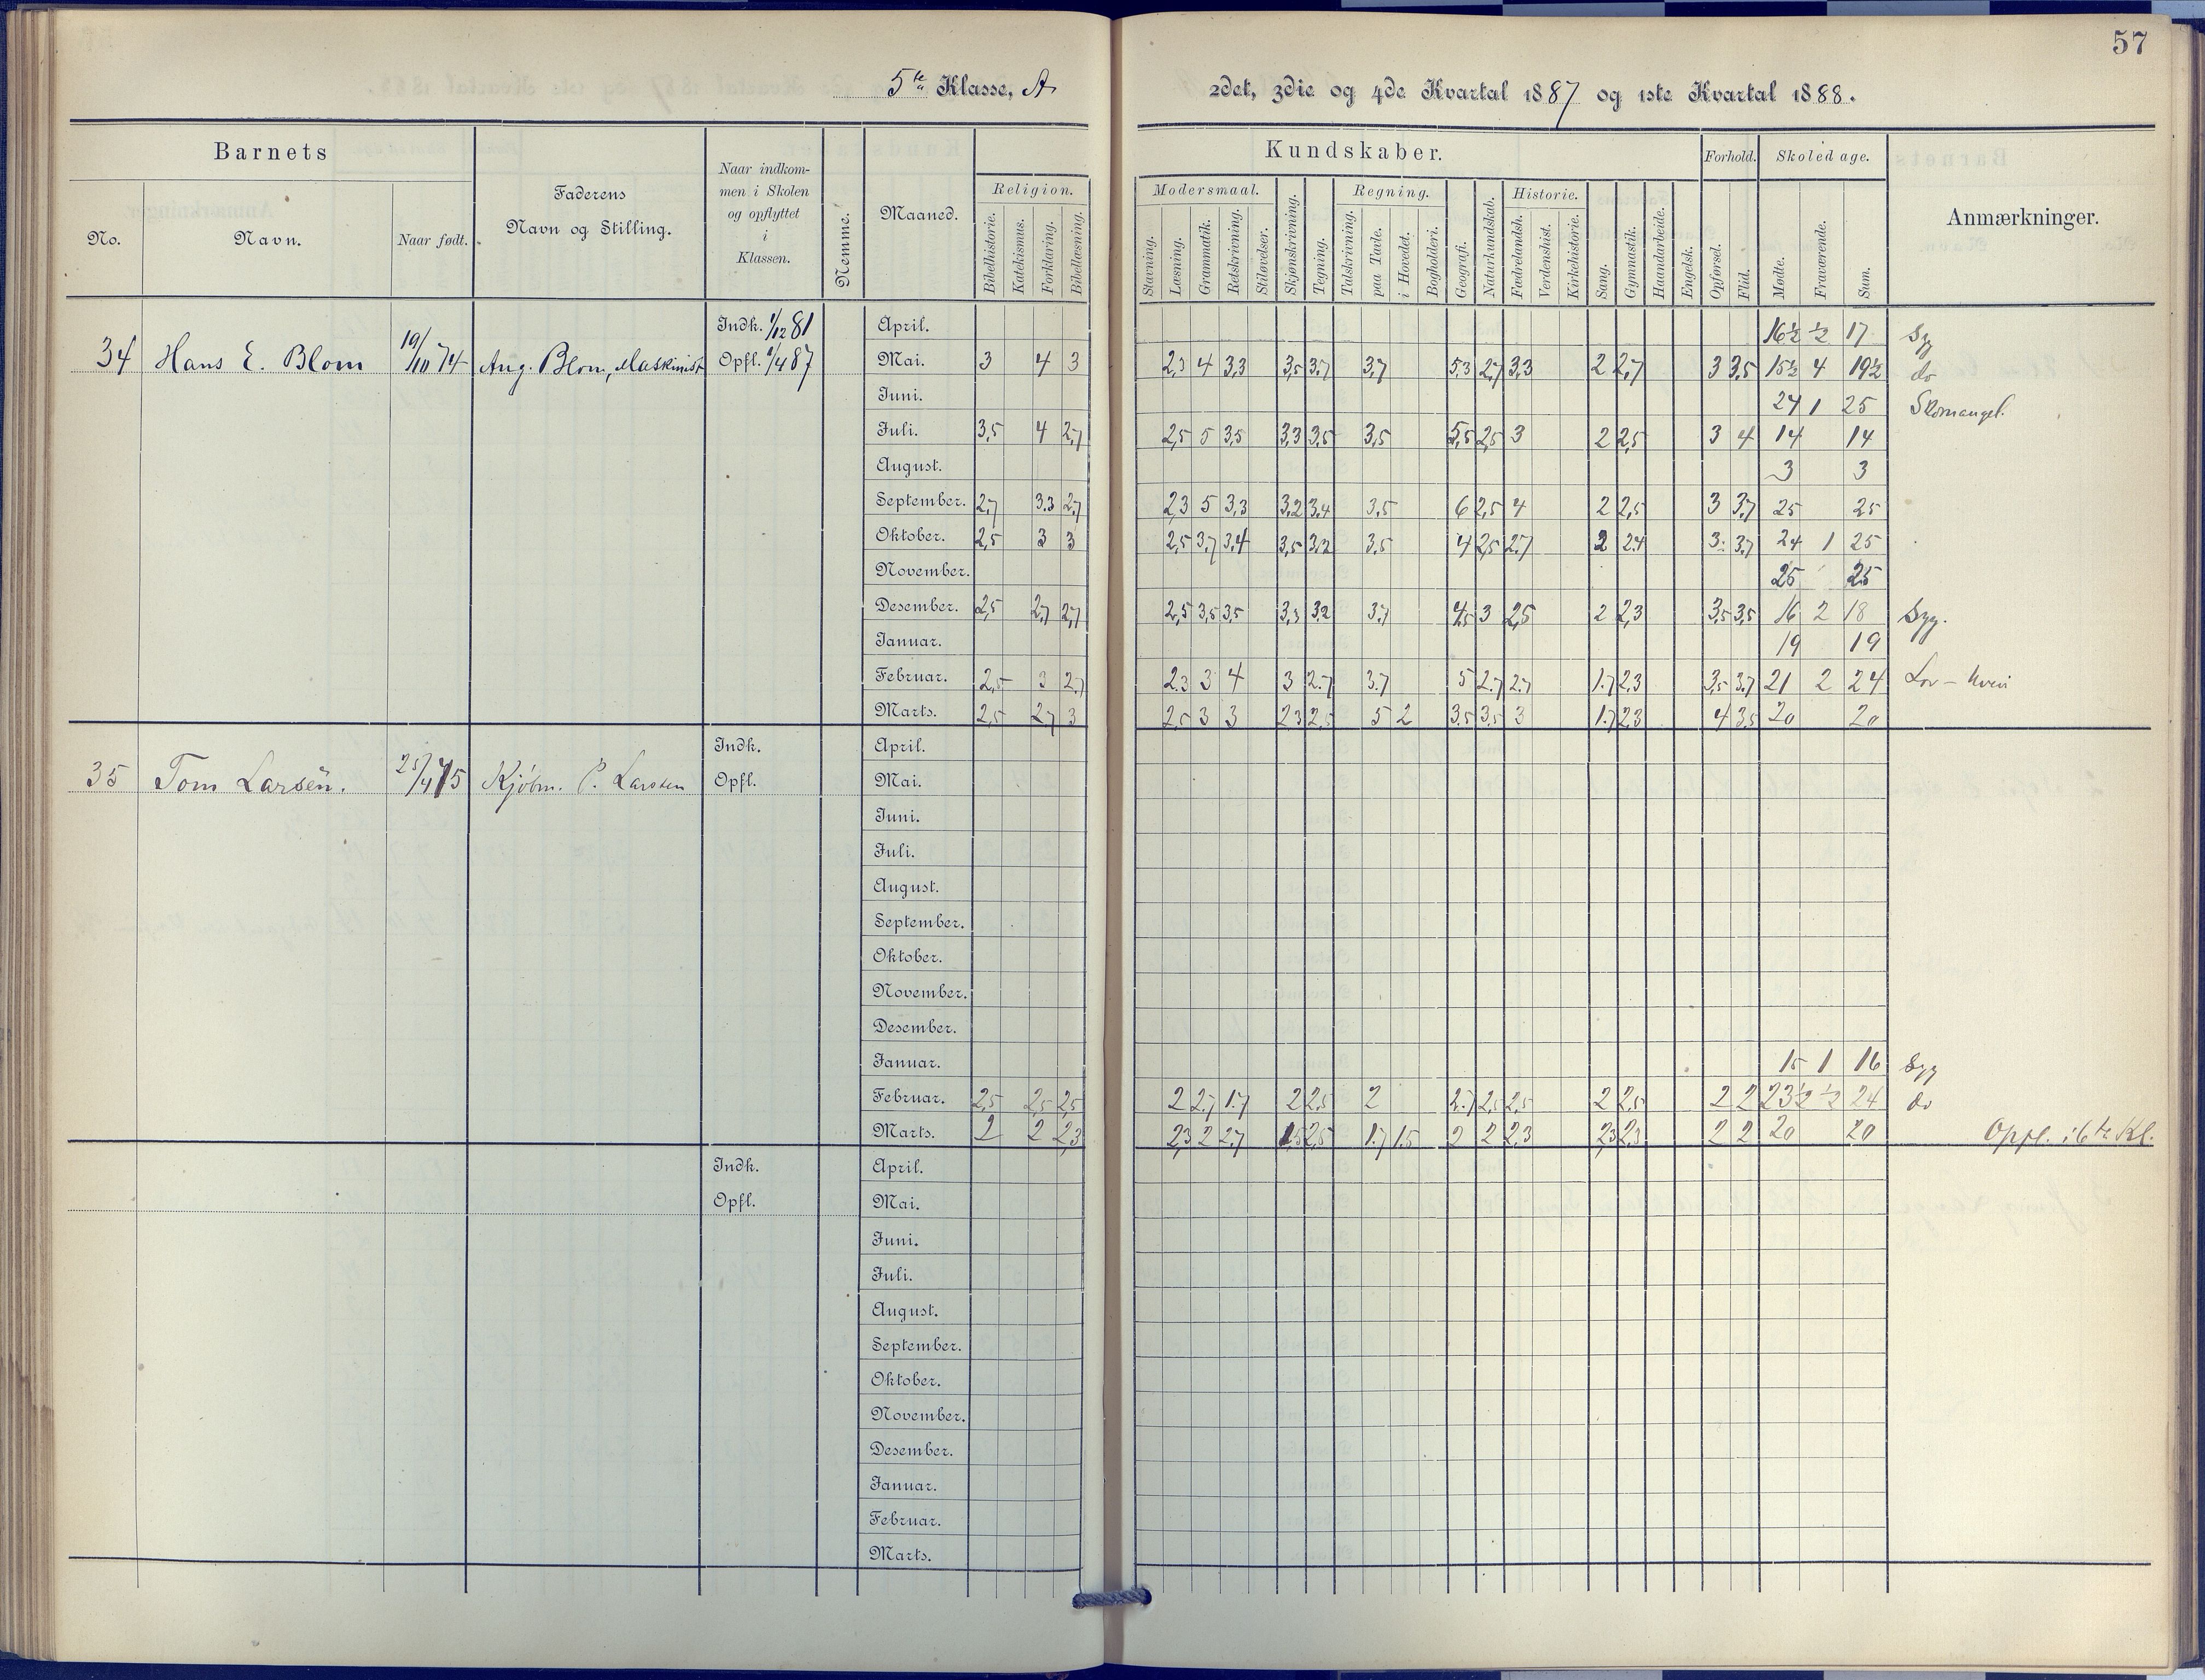 57
5te Klasse, A
2det, 3die og 4de Kvartal 1887 og 1ste Kvartal 1888.
Barnets
No.
Navn.
Naar født.
Faderens
Navn og Stilling.
Naar indkom-
men i Skolen
og opflyttet
i
Klassen.
Nemme.
Maaned.
Kundskaber.
Religion.
Bibelhistorie.
Katekismus.
Forklaring.
Bibellæsning.
Modersmaal.
Stavning.
Læsning.
Grammatik.
Retskrivning.
Stiløvelser.
Skjønskrivning.
Tegning.
Regning.
Talskrivning.
paa Tavle.
i Hovedet.
Bogholderi.
Geografi.
Naturkundskab.
Historie.
Fædrelandsh.
Verdenshist.
Kirkehistorie.
Sang.
Gymnastik.
Haandarbeide.
Engelsk.
Forhold.
Opførsel.
Flid.
Skoledage.
Mødte.
Fraværende.
Sum.
Anmærkninger.
34 Hans E. Blom 19/10 74 Aug. Blom, Maskinist
Indk. 1/12 81
Opfl. 1/4 87
April. 16½ ½ 17 Syg
Mai. 3 4 3 2,3 4 3,3 3,5 3,7 3,7 5,3 2,7 3,3 2 2,7 3 3,5 15½ 4 19½ do
Juni. 24 1 25 Skomangel.
Juli. 3,5 4 2,7 2,5 5 3,5 3,3 3,5 3,5 5,5 2,5 3 2 2,5 3 4 14 14
August. 3 3
September. 2,7 3.3 2,7 2,3 5 3,3 3,2 3,4 3,5 6 2,5 4 2 2,5 3 3,7 25 25
Oktober. 2,5 3 3 2,5 3,7 3,4 3,5 3,2 3,5 4 2,5 2,7 2 2,4 3 3,7 24 1 25
November. 25 25
Desember. 2,5 2,7 2,7 2,5 3,5 3,5 3,3 3,2 3,7 4,5 3 2,5 2 2,3 3,5 3,5 16 2 18 Syg.
Januar. 19 19
Februar. 2,5 3 2,7 2.3 3 4 3 2.7 3.7 5 2.7 2.7 1.7 2,3 3,5 3.7 21 2 24 Lov
Marts. 2,5 2,7 3 2,5 3 3 2 3 2,5 5 2 3.5 3,5 3 1.7 2,3 4 3,5 20 20
35 Tom Larsen. 25/4 75 Kjøbm. P. Larsen
Indk.
Opfl.
April.
Mai.
Juni.
Juli.
August.
September.
Oktober.
November.
Desember.
Januar. 15 1 16 Syg
Februar. 2,5 2,5 2,5 2 2,7 1.7 2 2,5 2 2.7 2,5 2,5 2 2,5 2 2 23½ ½ 24 do
Marts. 2 2 2,3 2,3 2 2,7 1,5 2,5 1.7 1.5 2 2 2,3 2,3 2,3 2 2 20 20 Opfl. i 6te Kl.
Indk.
Opfl.
April.
Mai.
Juni.
Juli.
August.
September.
Oktober.
November.
Desember.
Januar.
Februar.
Marts.